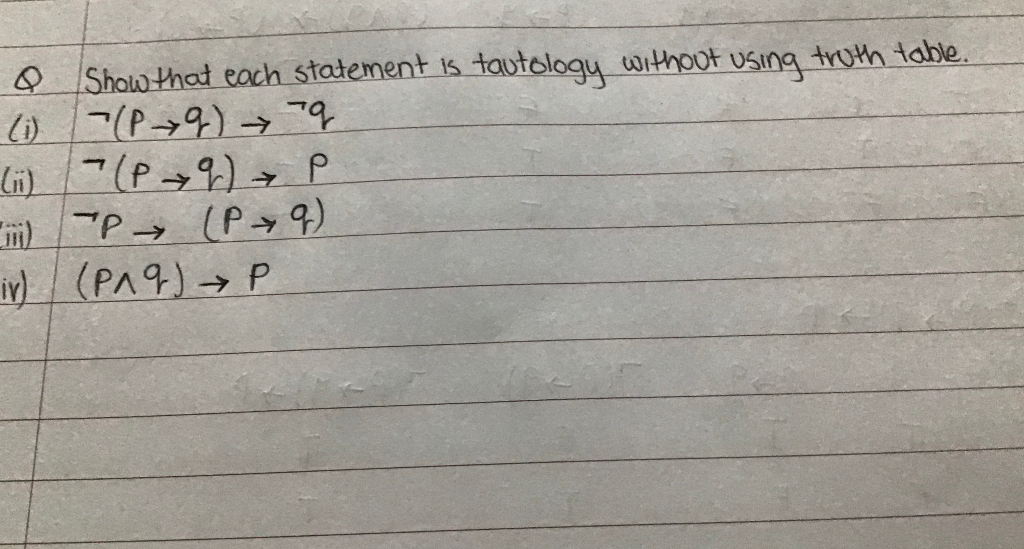 Q Show that each statement is tautology without using truth table.
(i) ¬(P→q) → ¬q
(ii) ¬(P→q) → P
(iii) ¬P → (P→q)
iv) (P∧q) → P